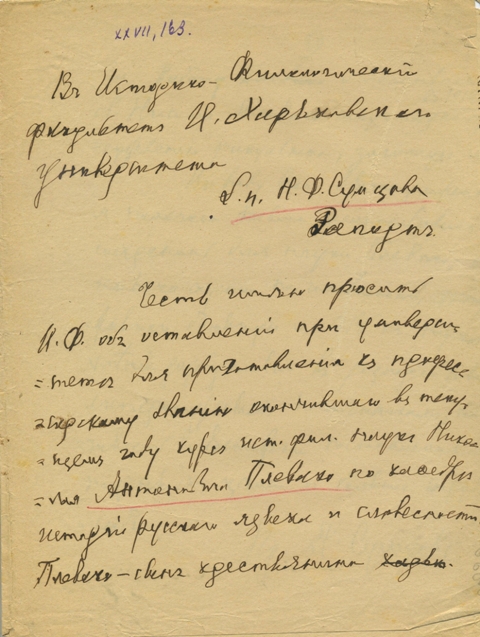 XXVII, 163.
Въ Историко-Филологическій
факультетъ И. Харьковскаго
университета
б. п. Н. Ф. Сумцова
Рапортъ.
Честь имѣю просить
И. Ф. объ оставленіи при универси-
=тетѣ для приготовленія къ профес-
=сорскому званію окончившаго въ теку-
=щемъ году курсъ ист. фил. наукъ Нико-
=лая Антоновича Плевако по каѳедрѣ
исторіи русскаго языка и словесности
Плевако – сынъ крестьянина